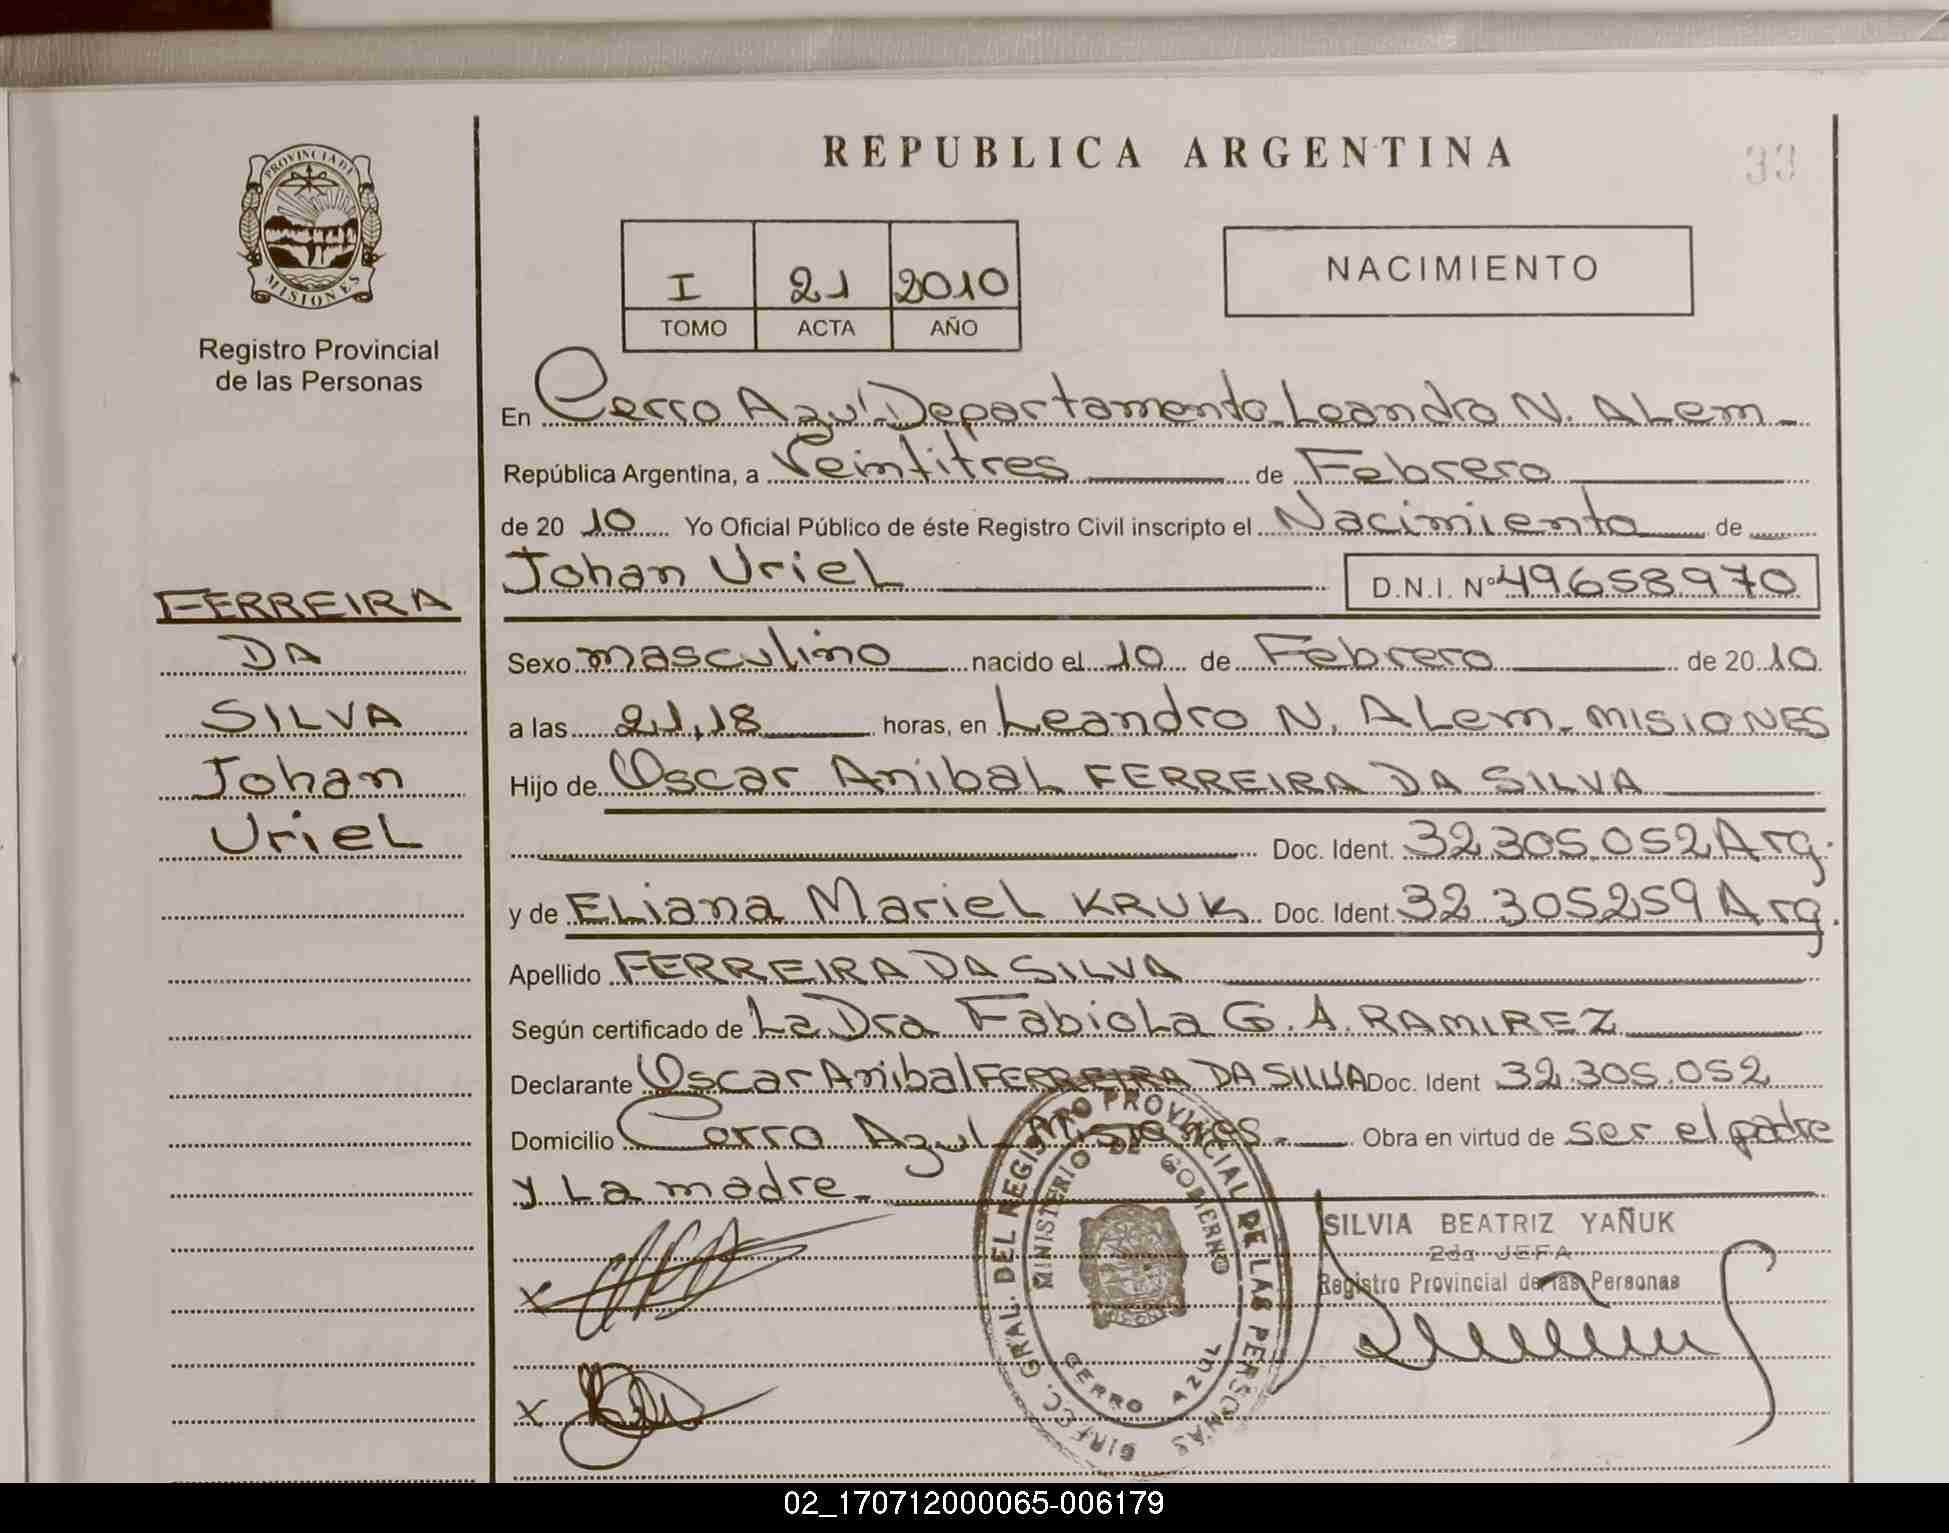 REPUBLICA ARGENTINA
33
PROVINCIA DE
MISIONES
Registro Provincial
de las Personas
I 21 2010
TOMO ACTA AÑO
NACIMIENTO
En Cerro Azul Departamento Leandro N. ALem -
República Argentina, a Veintitres de Febrero
de 20 10 Yo Oficial Público de éste Registro Civil inscripto el Nacimiento de
Johan UrieL D.N.I. Nº 49658970
FERREIRA
DA
SILVA
Johan
UrieL
Sexo masculino nacido el 10 de Febrero de 20 10
a las 21,18 horas, en Leandro N. ALem - MISIONES
Hijo de Oscar AnibaL FERREIRA DA SILVA
Doc. Ident. 32.305.052 Arg.
y de ELiana MarieL KRUK Doc. Ident. 32 305259 Arg.
Apellido FERREIRA DA SILVA
Según certificado de La Dra FabioLa G. A. RAMIREZ
Declarante Oscar Anibal FERREIRA DA SILVA Doc. Ident 32.305.052
Domicilio Cerro Azul - Misiones - Obra en virtud de ser el padre
y La madre -
SILVIA BEATRIZ YAÑUK
2da JEFA
Registro Provincial de las Personas
x
x
DIREC. GRAL. DEL REGISTRO PROVINCIAL DE LAS PERSONAS
MINISTERIO DE GOBIERNO
CERRO AZUL
02_170712000065-006179